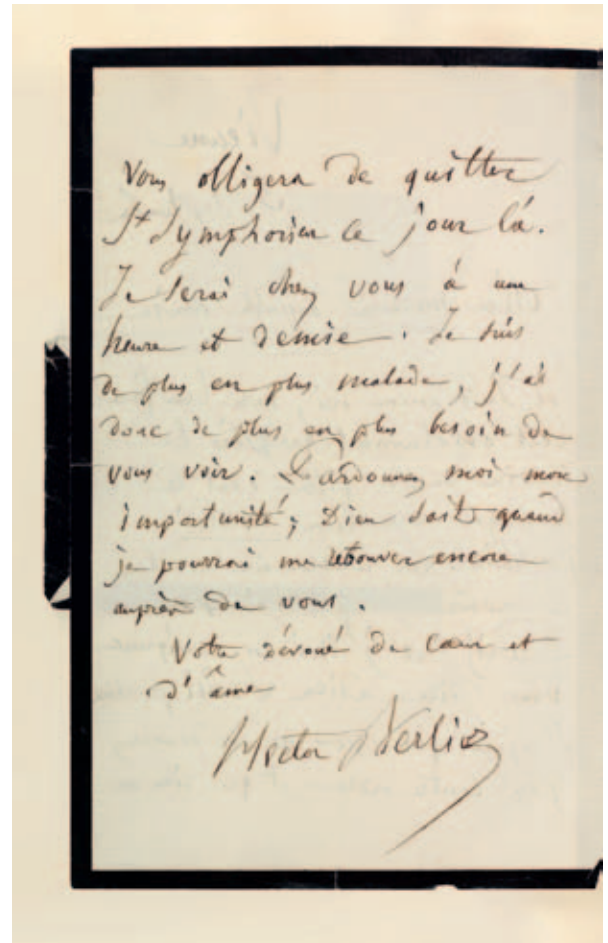 vous obligera de quitter
St Symphorien ce jour là.
Je serai chez vous à une
heure et demie. Je suis
de plus en plus malade, j'ai
donc de plus en plus besoin de
vous voir. Pardonnez moi mon
importunité; Dieu sait quand
je pourrai me retrouver encore
auprès de vous.
Votre dévoué de cœur et
d'âme
Hector Berlioz